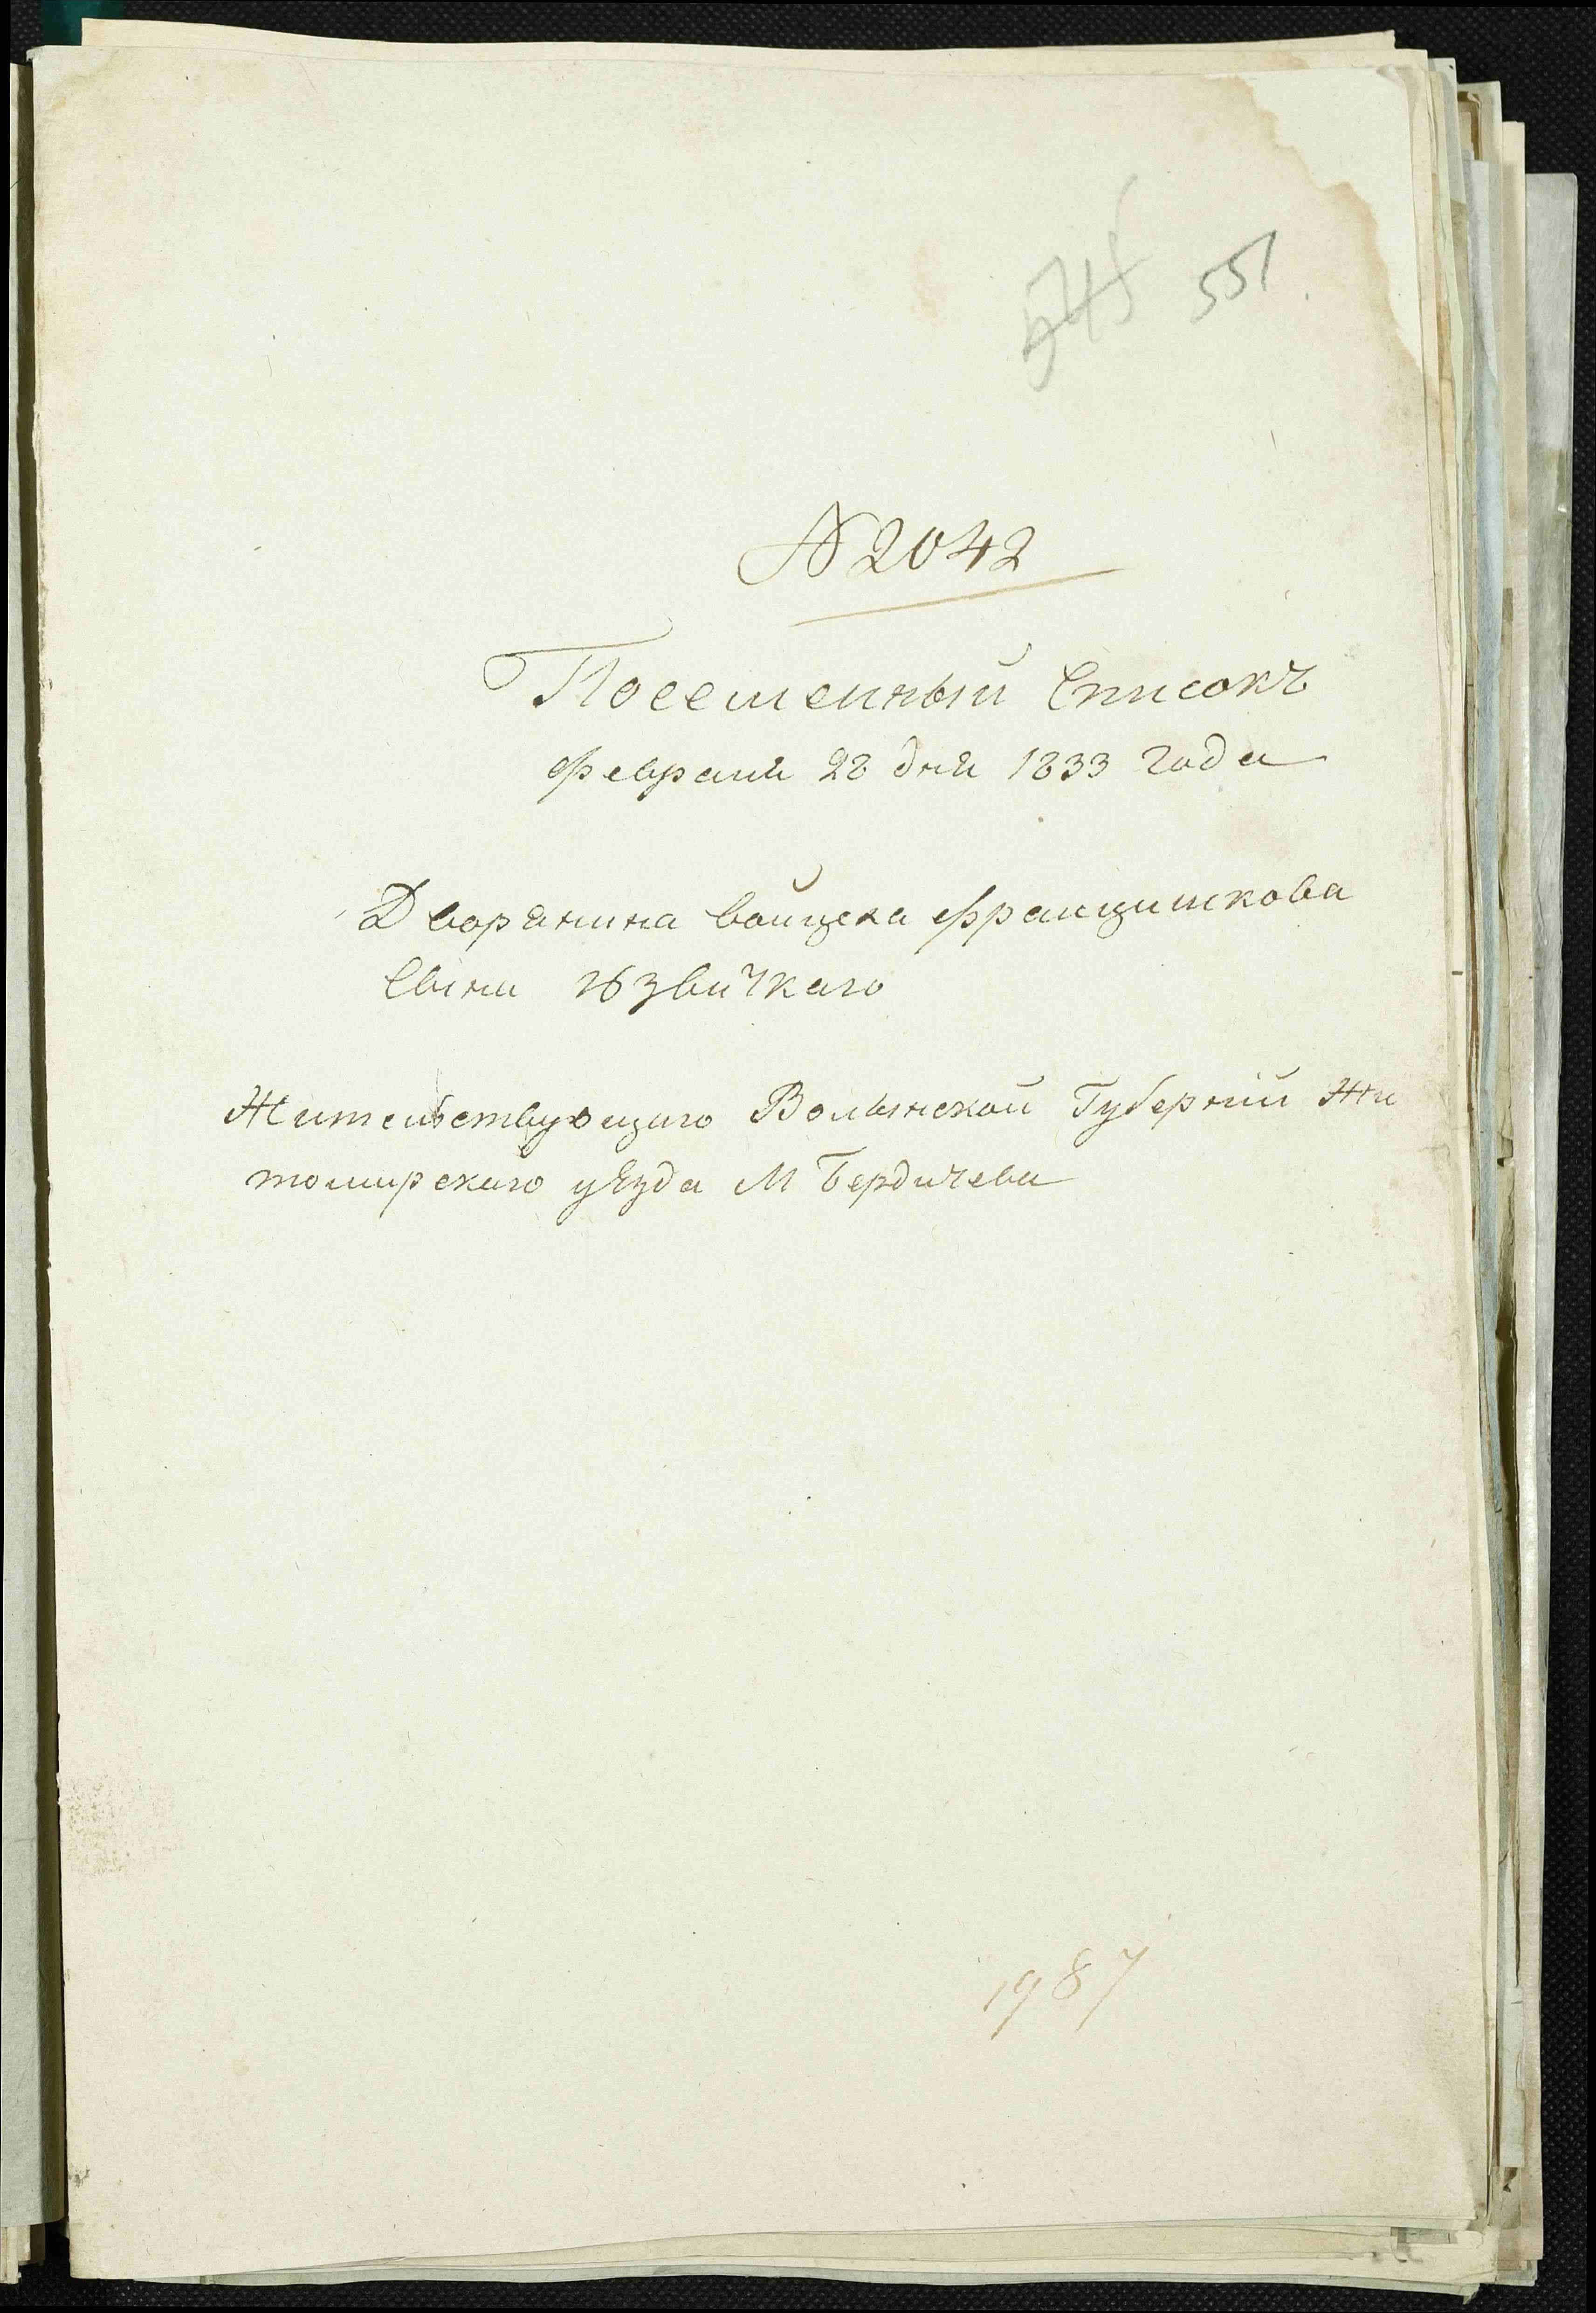 545 551
N 2042
Посеменный Списокъ
февраля 28 дня 1833 года
Дворянина войцеха францишкова
Сына
Жительствующаго Волынской Губерній Жи
томирскаго уѣзда М Бердичева
1987